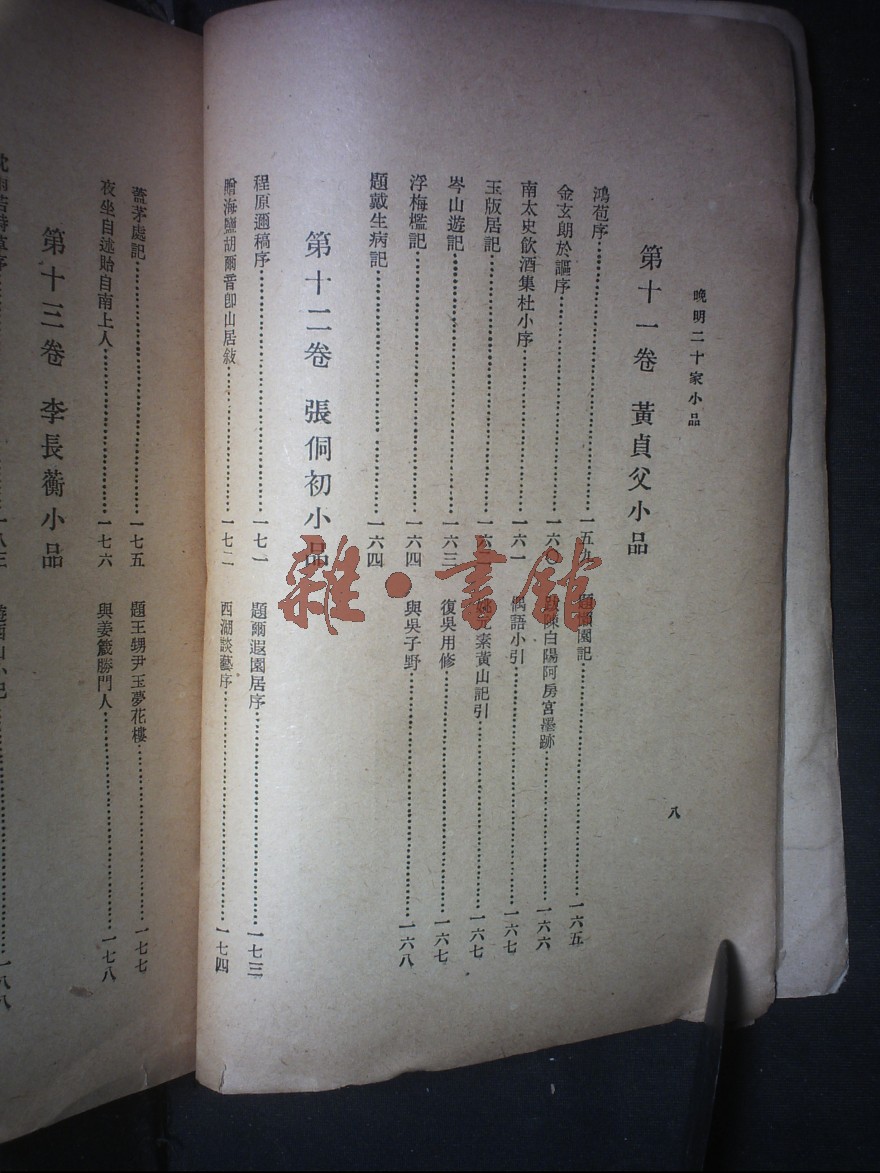 晚明二十家小品
八
第十一卷 黃貞父小品
鴻苞序 一五九
金玄朗於謳序 一六〇
南太史飲酒集杜小序 一六一
玉版居記
岑山遊記 一六三
浮梅檻記 一六四
題戴生病記 一六四
園記 一六五
陳白陽阿房宮墨跡 一六六
偶語小引 一六七
姚元素黃山記引 一六七
復吳用修 一六七
與吳子野 一六八
第十二卷 張侗初小品
程原邇稿序 一七一
贈海鹽胡爾音卽山居敍 一七二
題爾遐園居序 一七三
西湖談藝序 一七四
蓋茅處記 一七五
夜坐自述貽自南上人 一七六
題王甥尹玉夢花樓 一七七
與姜箴勝門人 一七八
第十三卷 李長蘅小品
雜·書館